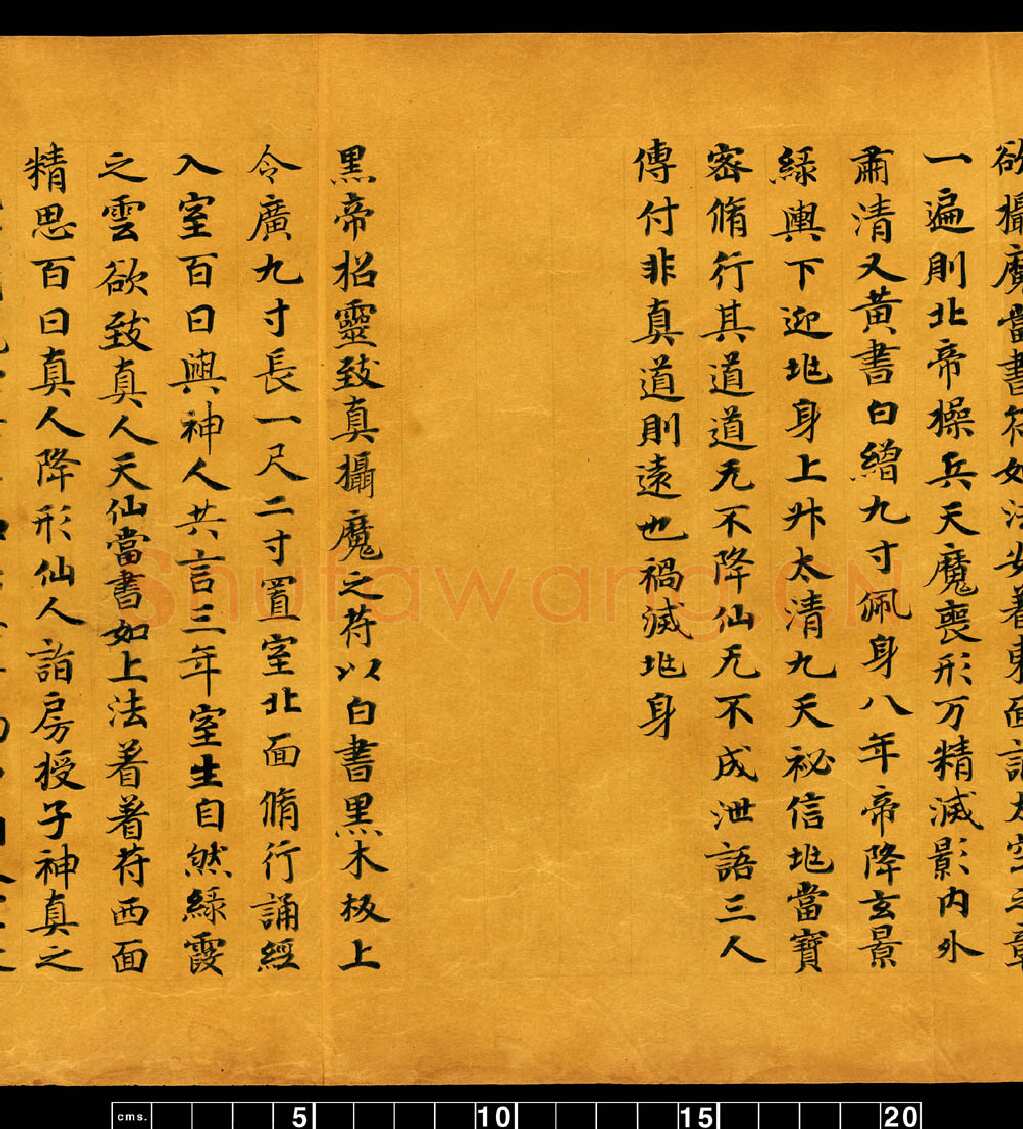 欲攝魔當書符如法安着東面誦太空之章
一遍則北帝操兵天魔喪形万精滅影内外
肅清又黃書白繒九寸佩身八年帝降玄景
綠輿下迎地身上升太清九天祕信地當寶
密脩行其道道无不降仙无不成泄語三人
傳付非真道則遠也禍滅地身
黑帝招靈致真攝魔之苻以白書黑木板上
令廣九寸長一尺二寸置室北面脩行誦經
入室百日與神人共言三年室生自然綠霞
之雲欲致真人天仙當書如上法着着苻西面
精思百日真人降形仙人詣房授子神真之
Shufawang.CN
cms. 5 10 15 20